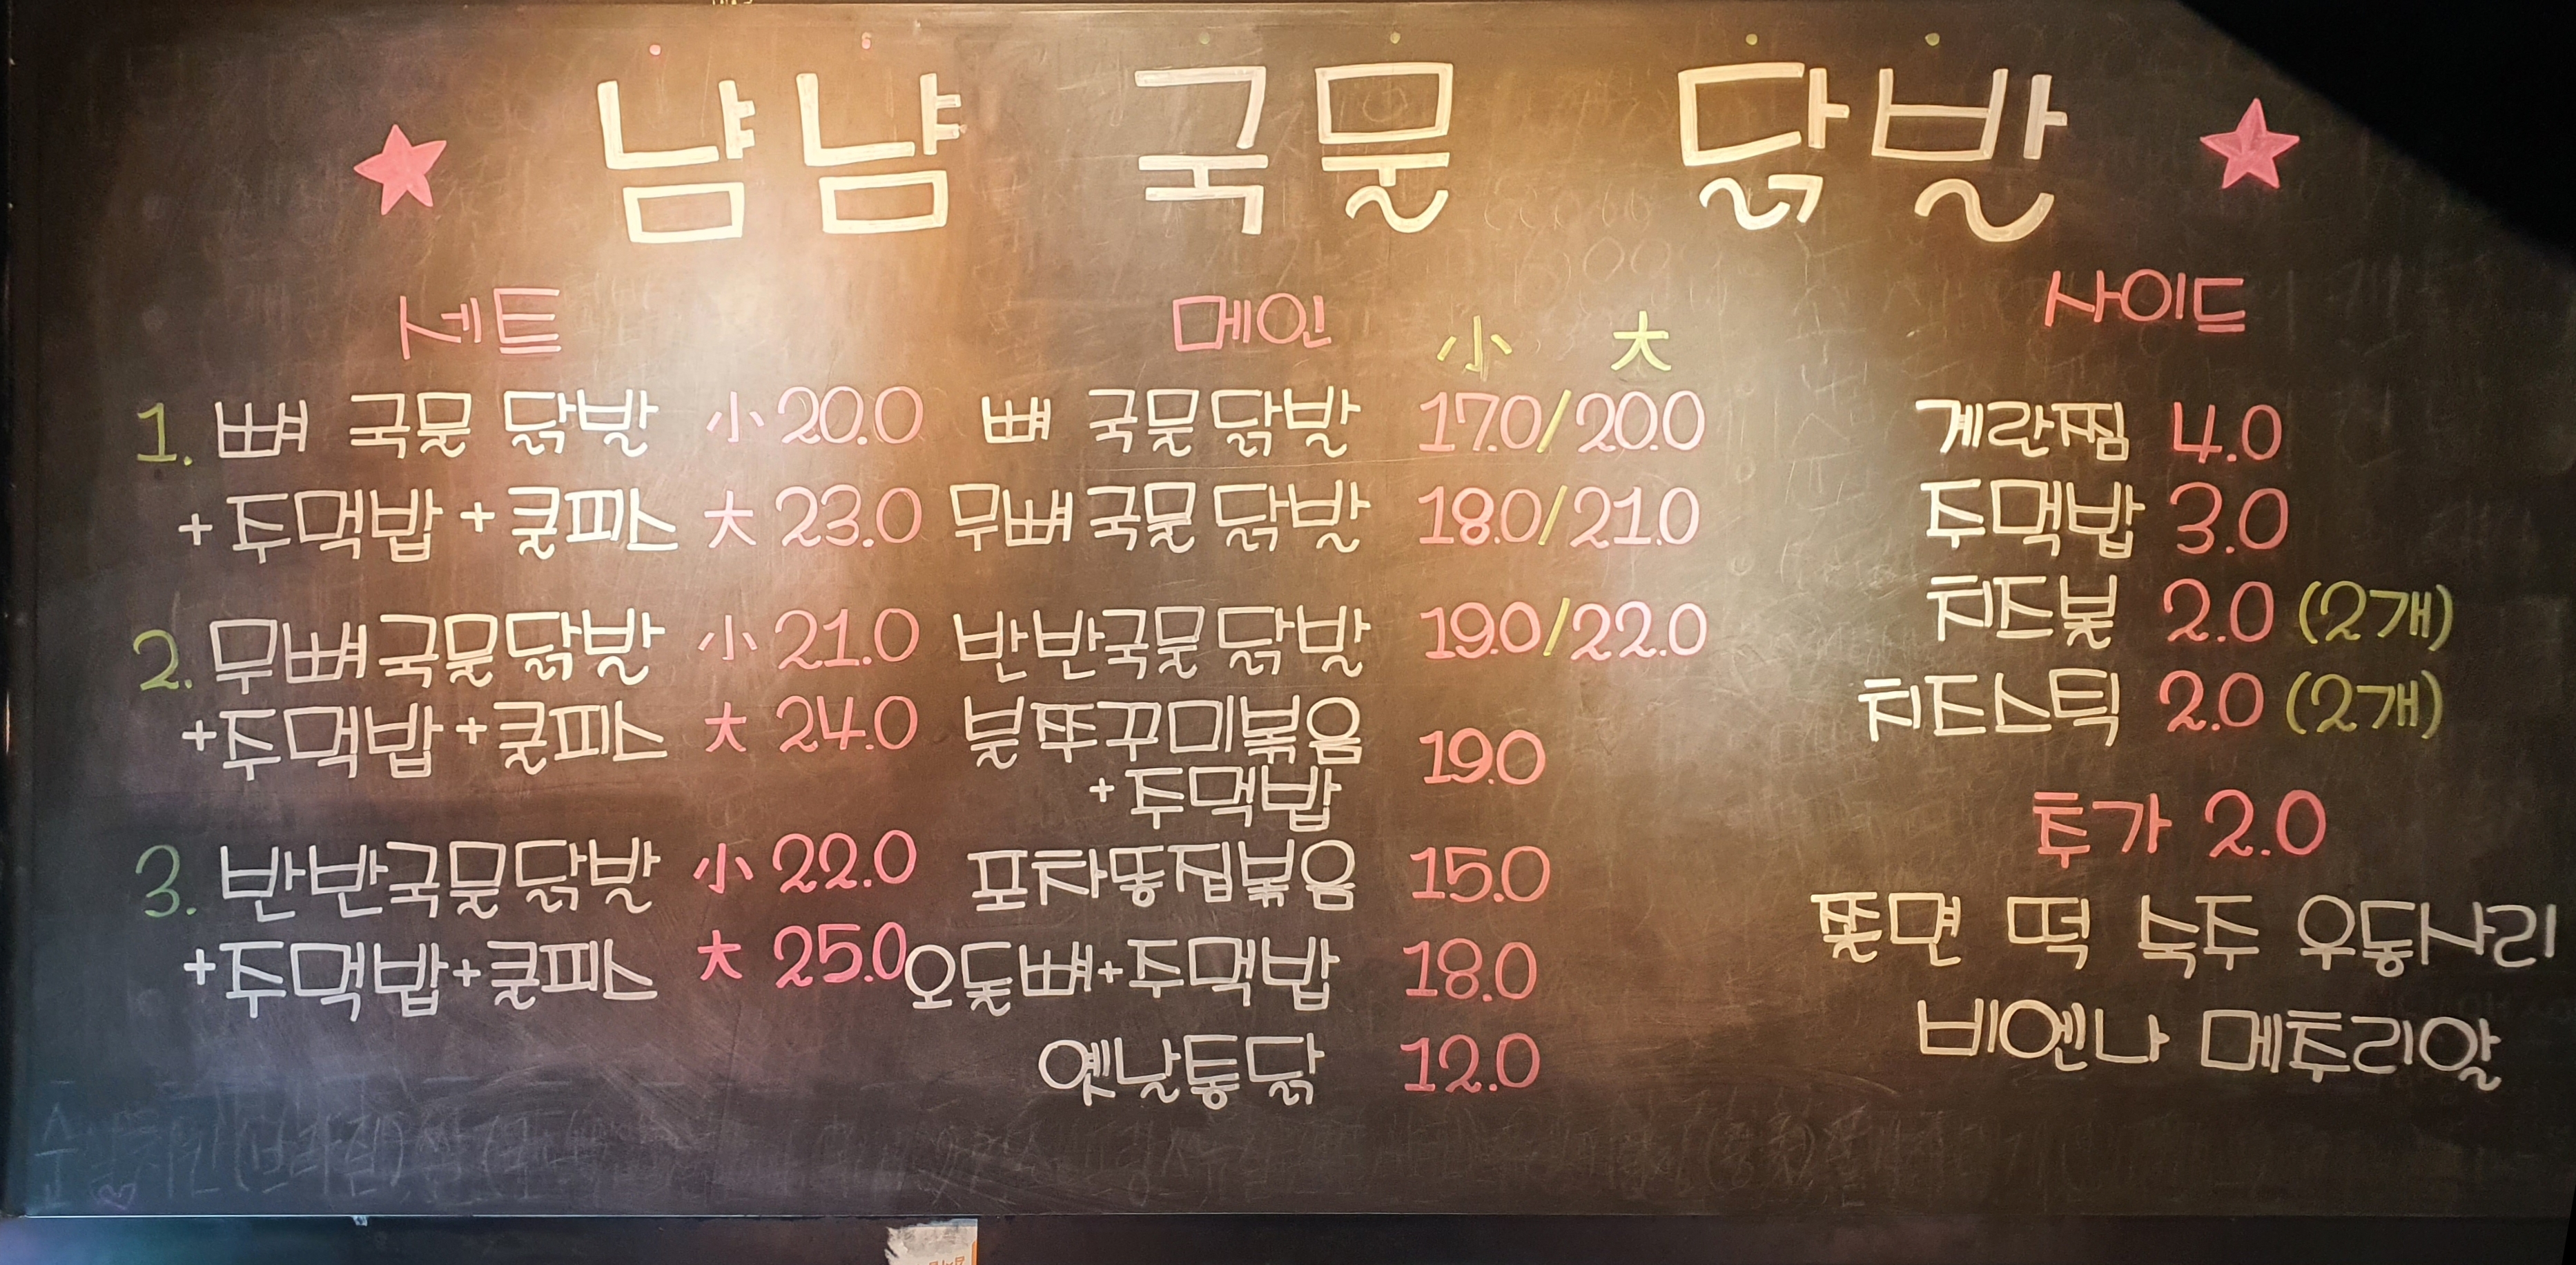 냠냠 국물 닭발
세트
1. 뼈 국물 닭발 小 20.0
+주먹밥+쿨피스 大 23.0
2. 무뼈국물닭발 小 21.0
+주먹밥+쿨피스 大 24.0
3. 반반국물닭발 小 22.0
+주먹밥+쿨피스 大 25.0
메인
小 大
뼈 국물닭발 17.0/20.0
무뼈국물닭발 18.0/21.0
반반국물닭발 19.0/22.0
불쭈꾸미볶음
+주먹밥 19.0
포차똥집볶음 15.0
오돌뼈+주먹밥 18.0
옛날통닭 12.0
사이드
계란찜 4.0
주먹밥 3.0
치즈볼 2.0 (2개)
치즈스틱 2.0 (2개)
추가 2.0
쫄면 떡 숙주 우동사리
비엔나 메추리알